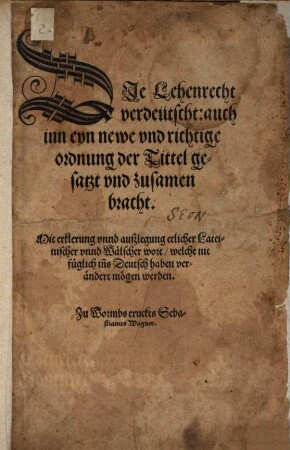 DIe Lehenrecht
verdeütscht: auch
inn eyn newe vnd richtige
ordnung der Tittel ge-
satzt vnd zusamen
bracht.
SEON
Mit erklerung vnnd außlegung etlicher Latei-
nischer vnnd Wälscher wort / welche nit
füglich ins Deutsch haben ver-
ändert mögen werden.
Zu Wormbs truckts Seba-
stianus Wagner.